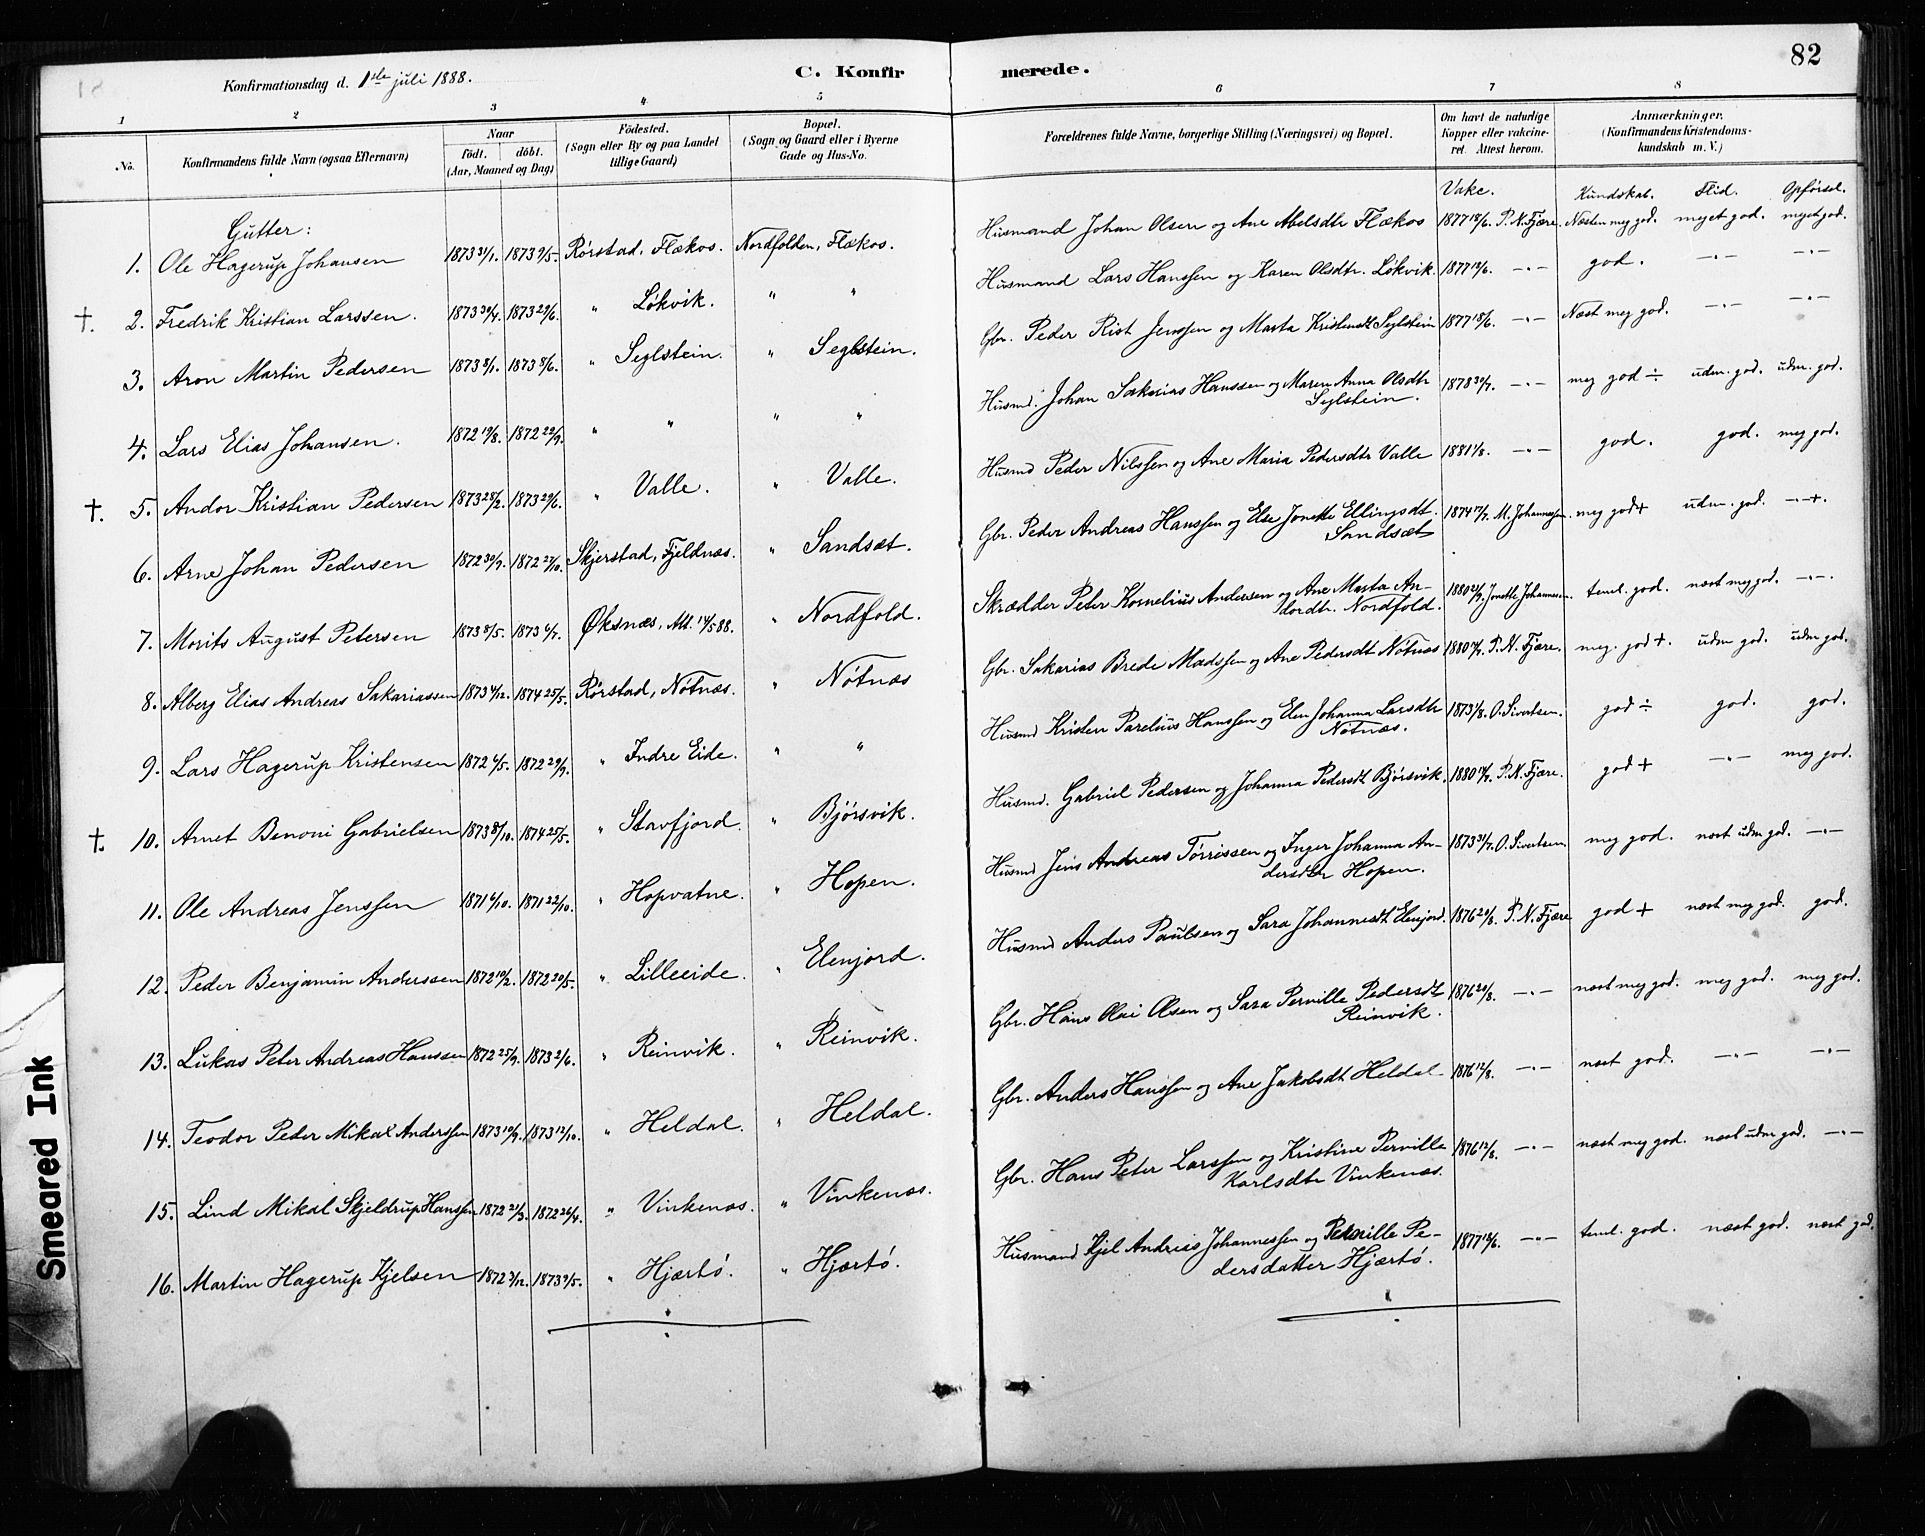 82
Konfirmationsdag d. 1ste juli 1888.
C. Konfirmerede.
1 2 3 4 5 6 7 8
No.
Konfirmandens fulde Navn (ogsaa Efternavn)
Naar
født. døbt.
(Aar, Maaned og Dag)
Fødested.
(Sogn eller By og paa Landet
tillige Gaard)
Bopæl.
(Sogn og Gaard eller i Byerne
Gade og Hus-No.
Forældrenes fulde Navne, borgerlige Stilling (Næringsvei) og Bopæl.
Om havt de naturlige
Kopper eller vakcine-
ret. Attest herom.
Anmærkninger.
(Konfirmandens Kristendoms-
kundskab m. V.)
Vakc. Kundskab. Flid. Opførsel.
Gutter:
1. Ole Hagerup Johansen 1873 31/1. 1873 9/5. Rørstad, Flækos. Nordfolden, Flækos. Husmand Johan Olsen og Ane Abelsdtr Flækos 1877 18/6. P. N. Fjære. Næsten meg god. meget god. meget god.
†. 2. Fredrik Kristian Larssen. 1873 30/4. 1873 29/6. " Løkvik. " " Husmand Lars Hanssen og Karen Olsdtr. Løkvik. 1877 18/6. -"- god. -"- -"-
3. Aron Martin Pedersen 1873 8/1. 1873 8/6. " Seglstein. " Seglstein. Gbr. Peder Rist Jenssen og Marta Kristensdt Seglstein 1877 18/6. -"- Næst meg god. -"- -"-
4. Lars Elias Johansen. 1872 19/8. 1872 22/9. " " " " Husmd. Johan Sakarias Hanssen og Maren Anna Olsdtr
Seglstein. 1878 30/7. -"- meg god ÷ udm. god. udm. god.
†. 5. Andor Kristian Pedersen 1873 28/2. 1873 29/6. " Valle. " Valle. Husmd Peder Nilssen og Ane Maria Pedersdtr Valle 1881 1/8. -"- god. god. meg god.
6. Arne Johan Pedersen 1872 30/7. 1872 27/10. Skjerstad, Fjeldnæs. " Sandsæt. Gbr. Peder Andreas Hanssen og Else Jonette Ellingsdt.
Sandsæt 1874 17/7. M. Johannessen. meg god + udm. god. -"- +.
7. Morits August Petersen 1873 8/5. 1873 6/7. Øksnæs, Att. 14/5 88. " Nordfold. Skrædder Peter Kornelius Andersen og Ane Marta An-
dorsdtr. Nordfold. 1880 21/7. Jonette Johannesen. teml. god. næst meg god. -"-.
8. Alberg Elias Andreas Sakariassen 1873 4/12. 1874 25/5. Rørstad, Nøtnæs. " Nøtnæs Gbr. Sakarias Brede Madssen og Ane Pedersdt Nøtnæs 1880 14/7. P. N. Fjære. meg. god +. udm god. udm god.
9. Lars Hagerup Kristensen 1872 6/5. 1872 29/9. " Indre Eide. " " Husmd Kristen Parelius Hanssen og Elen Johanna Larsdtr
Nøtnæs. 1873 1/8. O. Sivertsen. god ÷ god. god.
†. 10. Arnet Benoni Gabrielsen 1873 8/10. 1874 25/5. " Stavfjord. " Bjørsvik. Husmd. Gabriel Pedersen og Johanna Pedersdt Bjørsvik. 1880 14/7. P. N. Fjære. god + -"- meg god.
11. Ole Andreas Jenssen 1871 6/10. 1871 22/10. " Hopvatne. " Hopen. Husmd Jens Andreas Tørrissen og Inger Johanna An-
dersdtr Hopen. 1873 31/7. O. Sivertsen meg god. næst udm god. -"-
12. Peder Benjamin Anderssen 1872 19/2. 1872 20/5. " Lilleeide. " Elenjord. Husmd Anders Paulsen og Sara Johannesdt Elenjord. 1876 20/8. P. N. Fjære god + næst meg god. god.
13. Lukas Peter Andreas Hanssen 1872 25/9. 1873 2/6. " Reinvik. " Reinvik. Gbr. Hans Olai Olsen og Sara Pernille Pedersdt
Reinvik. 1876 20/8. -"- næst meg god. meg god. meg god.
14. Teodor Peder Mikal Anderssen 1873 10/9. 1873 12/10. " Heldal. " Heldal. Gbr. Anders Hanssen og Ane Jakobsdt Heldal 1876 12/8. -"- næst god. -"- -"-
15. Lind Mikal Skjeldrup Hanssen 1872 21/3. 1872 26/4. " Vinkenæs. " Vinkenæs. Gbr. Hans Peter Larssen og Kristine Pernille
Karlsdtr Vinkenæs. 1876 12/8. -"- næst meg god. næst udm god. -"-
16. Martin Hagerup Kjelsen 1872 3/12. 1873 9/5. " Hjærtø. " Hjærtø. Husmand Kjel Andreas Johannessen og Pernille Pe-
dersdatter Hjærtø. 1877 18/6. -"- teml. god. næst god. næst god.
Smeared Ink